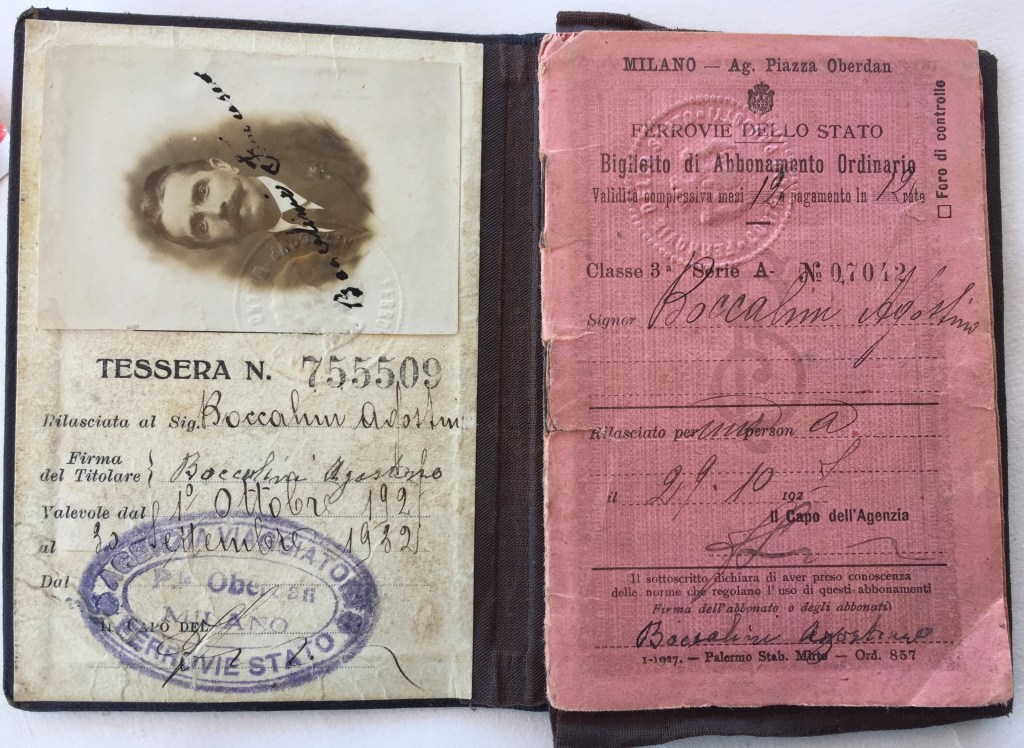 Boccalini Agostino
TESSERA N. 755509
Rilasciata al Sig. Boccalini Agostin
Firma
del Titolare } Boccalini Agostino
Valevole dal 1° Ottobre 192
al 30 Settembre 1932
Dal
IL CAPO DEL
AGENZIA VIAGGIATORI
P.le Oberdan
MILANO
FERROVIE STATO
MILANO — Ag. Piazza Oberdan
FERROVIE DELLO STATO
Biglietto di Abbonamento Ordinario
Validità complessiva mesi 12 a pagamento in 12 rate
Foro di controllo
Classe 3ª Serie A- № 07042
Signor Boccalini Agostino
Rilasciato per una person a
il 29. 10 192
Il Capo dell'Agenzia
Il sottoscritto dichiara di aver preso conoscenza
delle norme che regolano l'uso di questi abbonamenti
Firma dell'abbonato o degli abbonati)
Boccalini Agostino
1-1927. — Palermo Stab. Mirto — Ord. 857